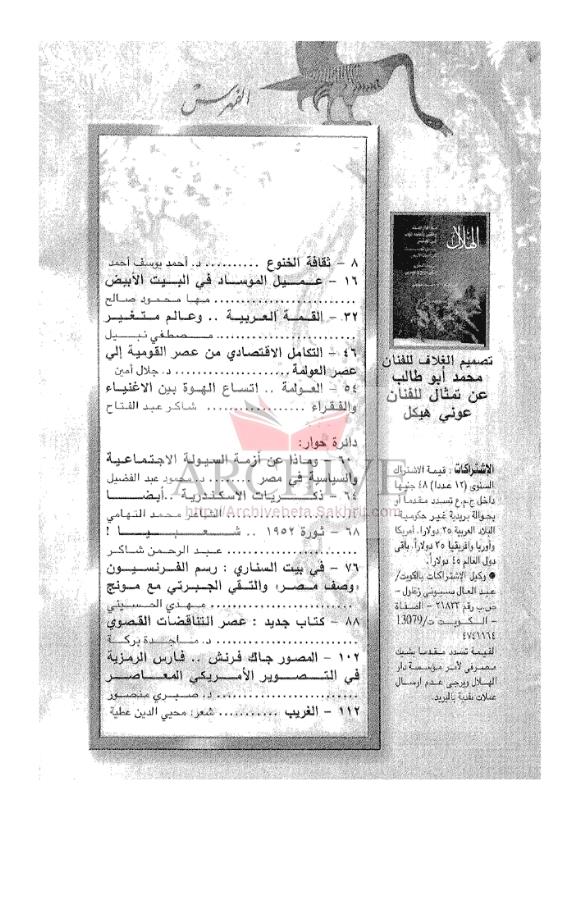 الفهرس
٨ - ثقافة الخنوع .......... د. أحمد يوسف أحمد
١٦ - عـمـيل الموسـاد في البـيت الأبيض
...................... مـهـا مـحـمـود صالح
٣٢ - القـمـة العربـيـة .. وعـالم مـتـغـير
...................... مـصـطفي نبـيـل
٤٦ - التكامل الاقتصادي من عصر القومية إلي
عصر العولمة ................ د. جلال أمين
٥٤ - العـولمة .. اتسـاع الهـوة بين الأغنيـاء
والفـقـراء ................ شاكر عبد الفتاح
دائرة حوار:
٦٠ - وماذا عن أزمـة السـيـولة الاجـتـمـاعـيـة
والسياسية في مصر ........ د. محمود عبد الفضيل
٦٤ - ذكـــريات الأسكندرية ..أيضــا
الشاعر محمد التهامي
٦٨ - ثـورة ١٩٥٢ .. شــعــبــيــا !
................ عـبـد الرحـمن شـاكـر
٧٦ - في بيت السناري : رسم الفـرنسـيـون
«وصف مصـر» والتـقي الجـبـرتي مع مـونج
...................... مـهـدي الحـسـيـني
٨٨ - كـتاب جديد : عصر التناقضات القصوي
...................... د. مـاجـدة بركـة
١٠٢ - المـصـور جـاك فـرنش .. فـارس الرمـزيـة
في التـصـوير الأمـريكي المـعـاصـر
...................... د. صـبـري منصـور
١١٢ - الغريب ........... شعر: محيي الدين عطية
الهلال
تصميم الغلاف للفنان
محمد أبو طالب
عن تمثال للفنان
عوني هيكل
الاشتراكات : قيمة الاشتراك
السنوي (١٢ عددا) ٤٨ جنيها
داخل ج.م.ع تسدد مقدما أو
بحوالة بريدية غير حكومية-
البلاد العربية ٢٥ دولارا. أمريكا
وأوربا وأفريقيا ٣٥ دولارا. باقي
دول العالم ٤٥ دولارا.
● وكيل الإشتراكات بالكويت/
عبد العال بسيوني زغلول -
ص.ب رقم ٢١٨٣٣ - الصفاة
- الكويت ت/13079
٤٧٤١١٦٤
القيمة تسدد مقدما بشيك
مصرفي لأمر مؤسسة دار
الهلال ويرجي عدم ارسال
عملات نقدية بالبريد.
ARCHIVE
http://Archivebeta.Sakhrit.com